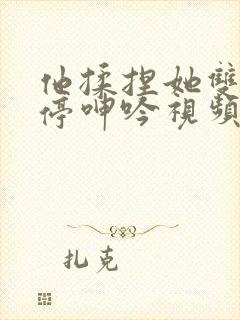 他揉捏她雙
停呻吟視頻
扎克